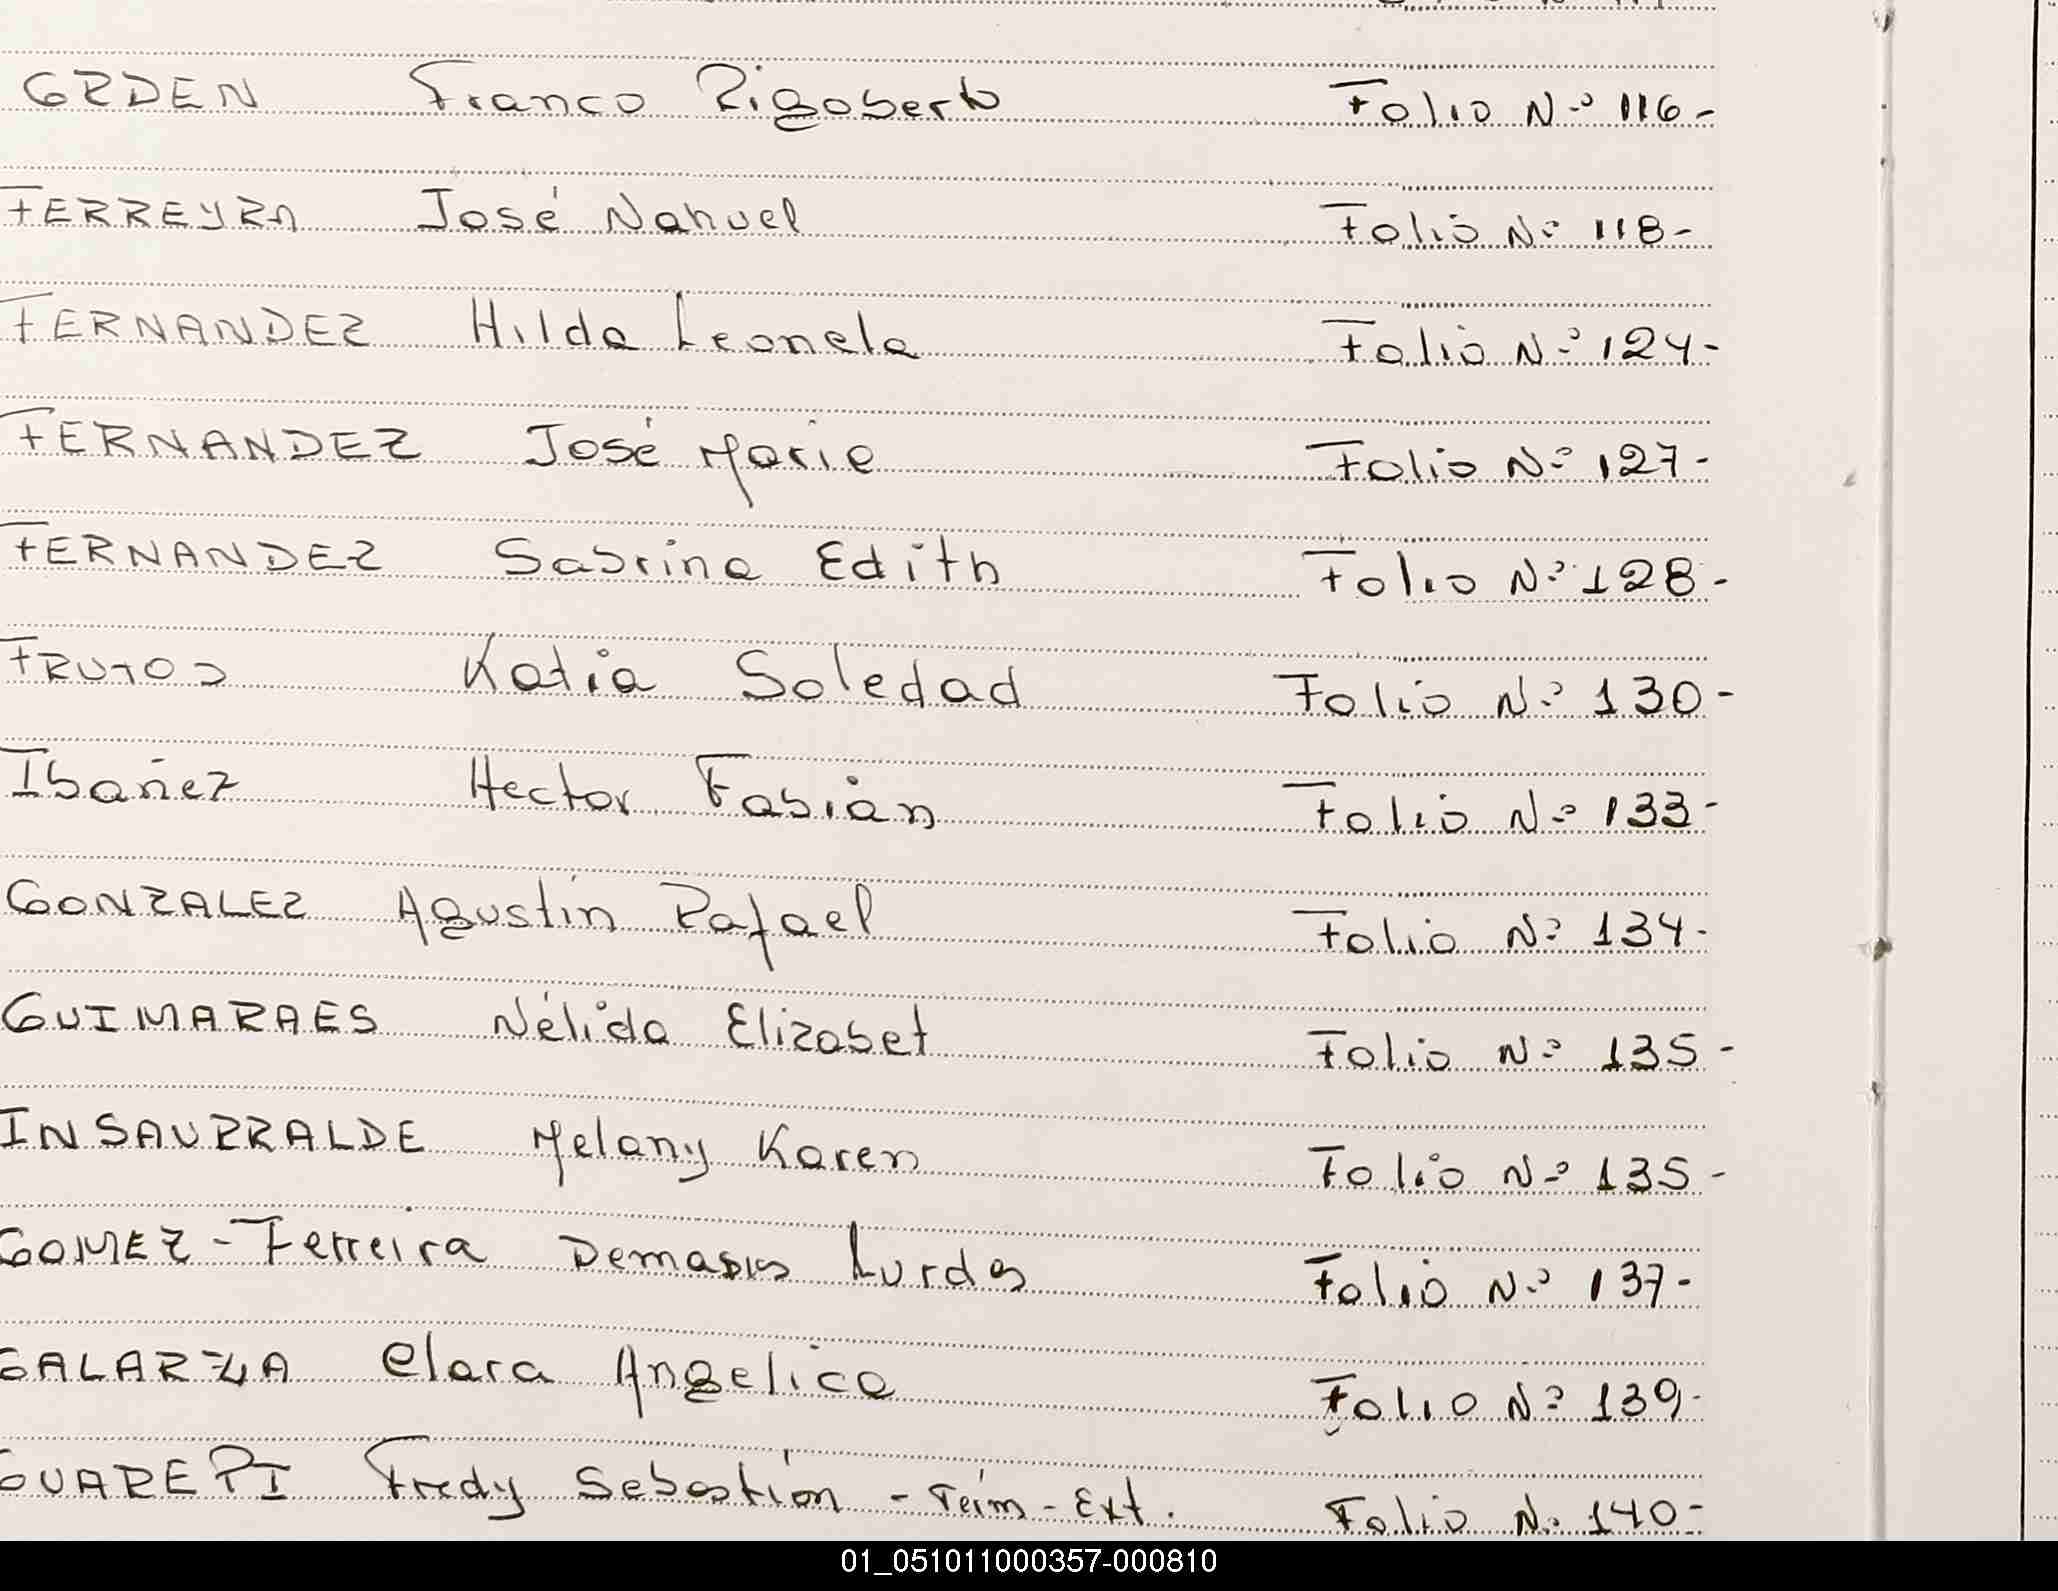 GRDEN Franco Rigoberto Folio Nº 116-
FERREYRA José Nahuel Folio Nº 118-
FERNANDEZ Hilda Leonela Folio Nº 124-
FERNANDEZ José Maria Folio Nº 127-
FERNANDEZ Sabrina Edith Folio Nº 128-
FRUTOS Katia Soledad Folio Nº 130-
Ibañez Hector Fabián Folio Nº 133-
GONZALEZ Agustín Rafael Folio Nº 134-
GUIMARAES Nélida Elizabet Folio Nº 135-
INSAURRALDE Melany Karen Folio Nº 135-
GOMEZ-Ferreira Lurdes Folio Nº 137-
GALARZA Clara Angelica Folio Nº 139-
GUAREPI Fredy Sebastián - - Ext. Folio N. 140-
01_051011000357-000810